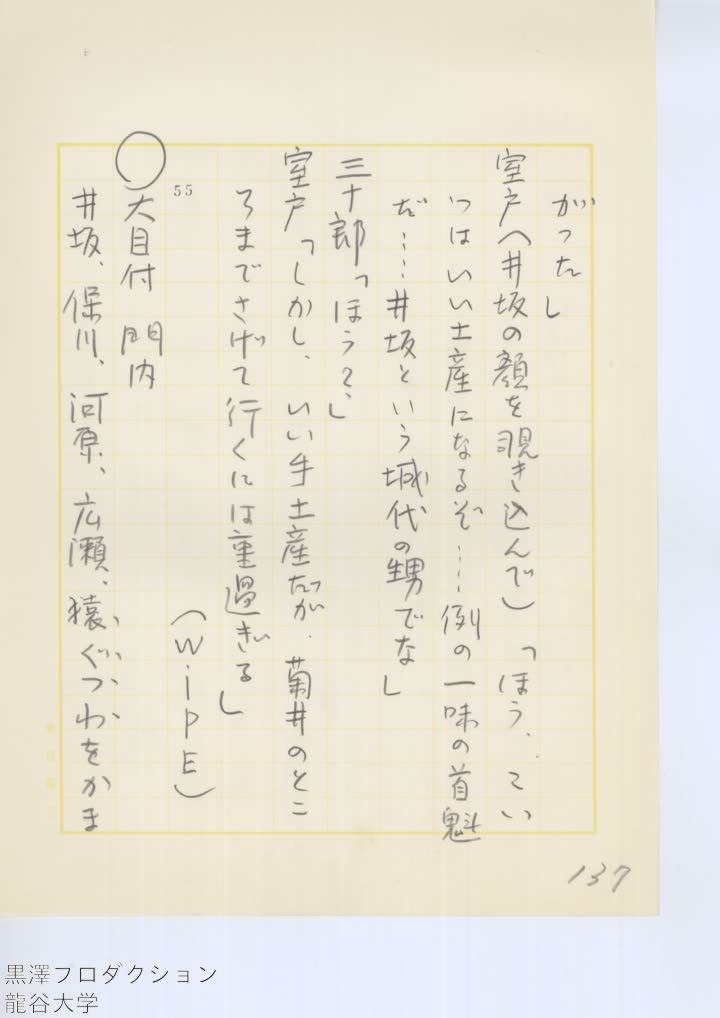 がつた」
室戸(井坂の顔を覗き込んで)「ほう、こい
つはいい土産になるぞ……例の一味の首魁
だ……井坂という城代の甥でな」
三十郎「ほう?」
室戸「しかし、いい手土産だが、菊井のとこ
ろまでさげて行くには重過ぎる」
(WipE)
55
○大目付 門内
井坂、保川、河原、広瀬、猿ぐつわをかま
137
黒澤プロダクション
龍谷大学